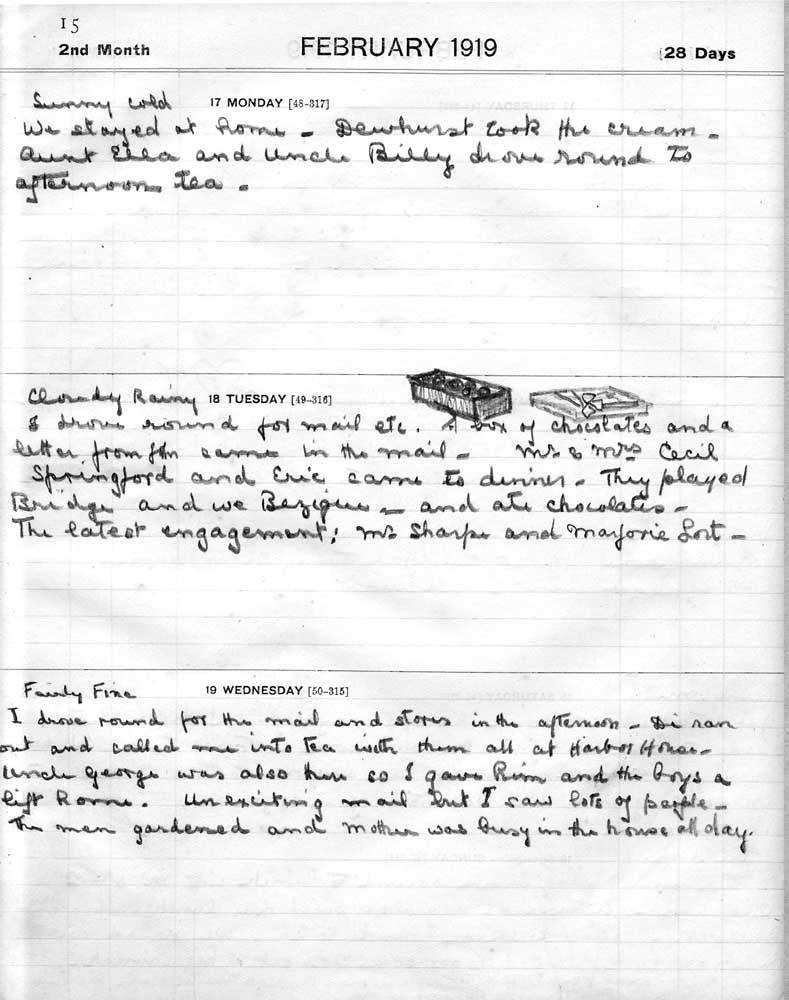 15
2nd Month FEBRUARY 1919 28 Days
Sunny cold 17 MONDAY [48-317]
We stayed at home - Dewhurst took the cream -
Aunt Ella and Uncle Billy drove round to
afternoon tea -
Cloudy Rainy 18 TUESDAY [49-316]
I drove round for mail etc. A box of chocolates and a
letter from came in the mail - Mr & Mrs Cecil
Springford and Eric came to dinner - They played
Bridge and we Bezique - and ate chocolates -
The latest engagement; Mr Sharpe and Marjorie Lort -
Fairly Fine 19 WEDNESDAY [50-315]
I drove round for the mail and stores in the afternoon - Di ran
out and called me into tea with them all at Harbor House -
Uncle George was also there so I gave him and the boys a
lift home. Unexciting mail but I saw lots of people -
The men gardened and Mother was busy in the house all day.